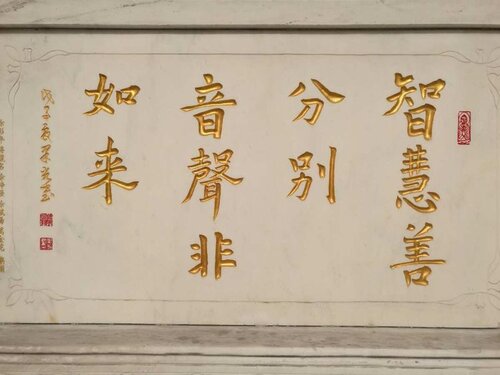 智慧善
分别
音聲非
如来
戊子夏